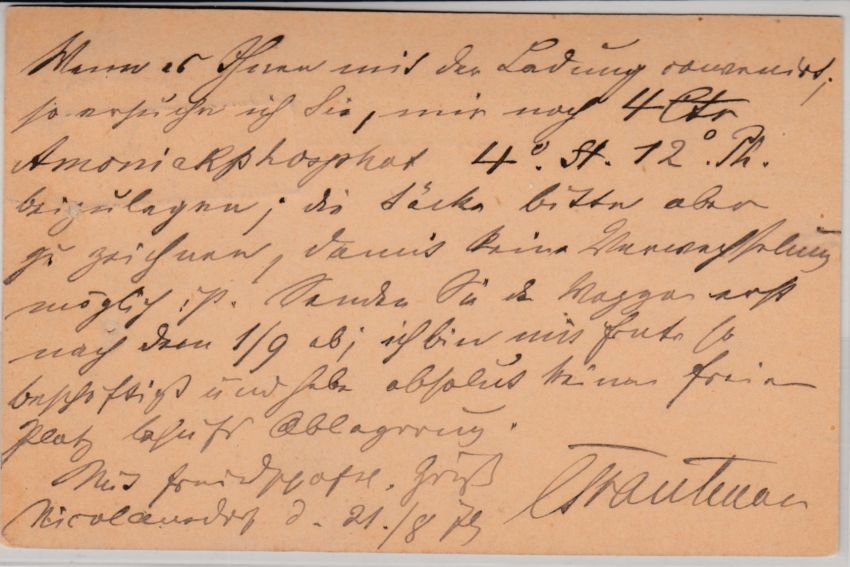 Wenn es Ihnen mit der Ladung convenirt,
so ersuche ich Sie, mir noch 4 Ctr
Amoniakphosphat 4°. St. 12°. Ph.
beizulegen; die Säcke bitte aber
zu zeichnen, damit keine Verwechselung
möglich ist. Senden Sie den Waggon erst
nach dem 1/9 ab; ich bin mit so
beschäftigt und habe absolut keinen freien
Platz behufs Ablagerung.
Mit freundschaftl. Gruß
Nicolausdorf d. 21./8